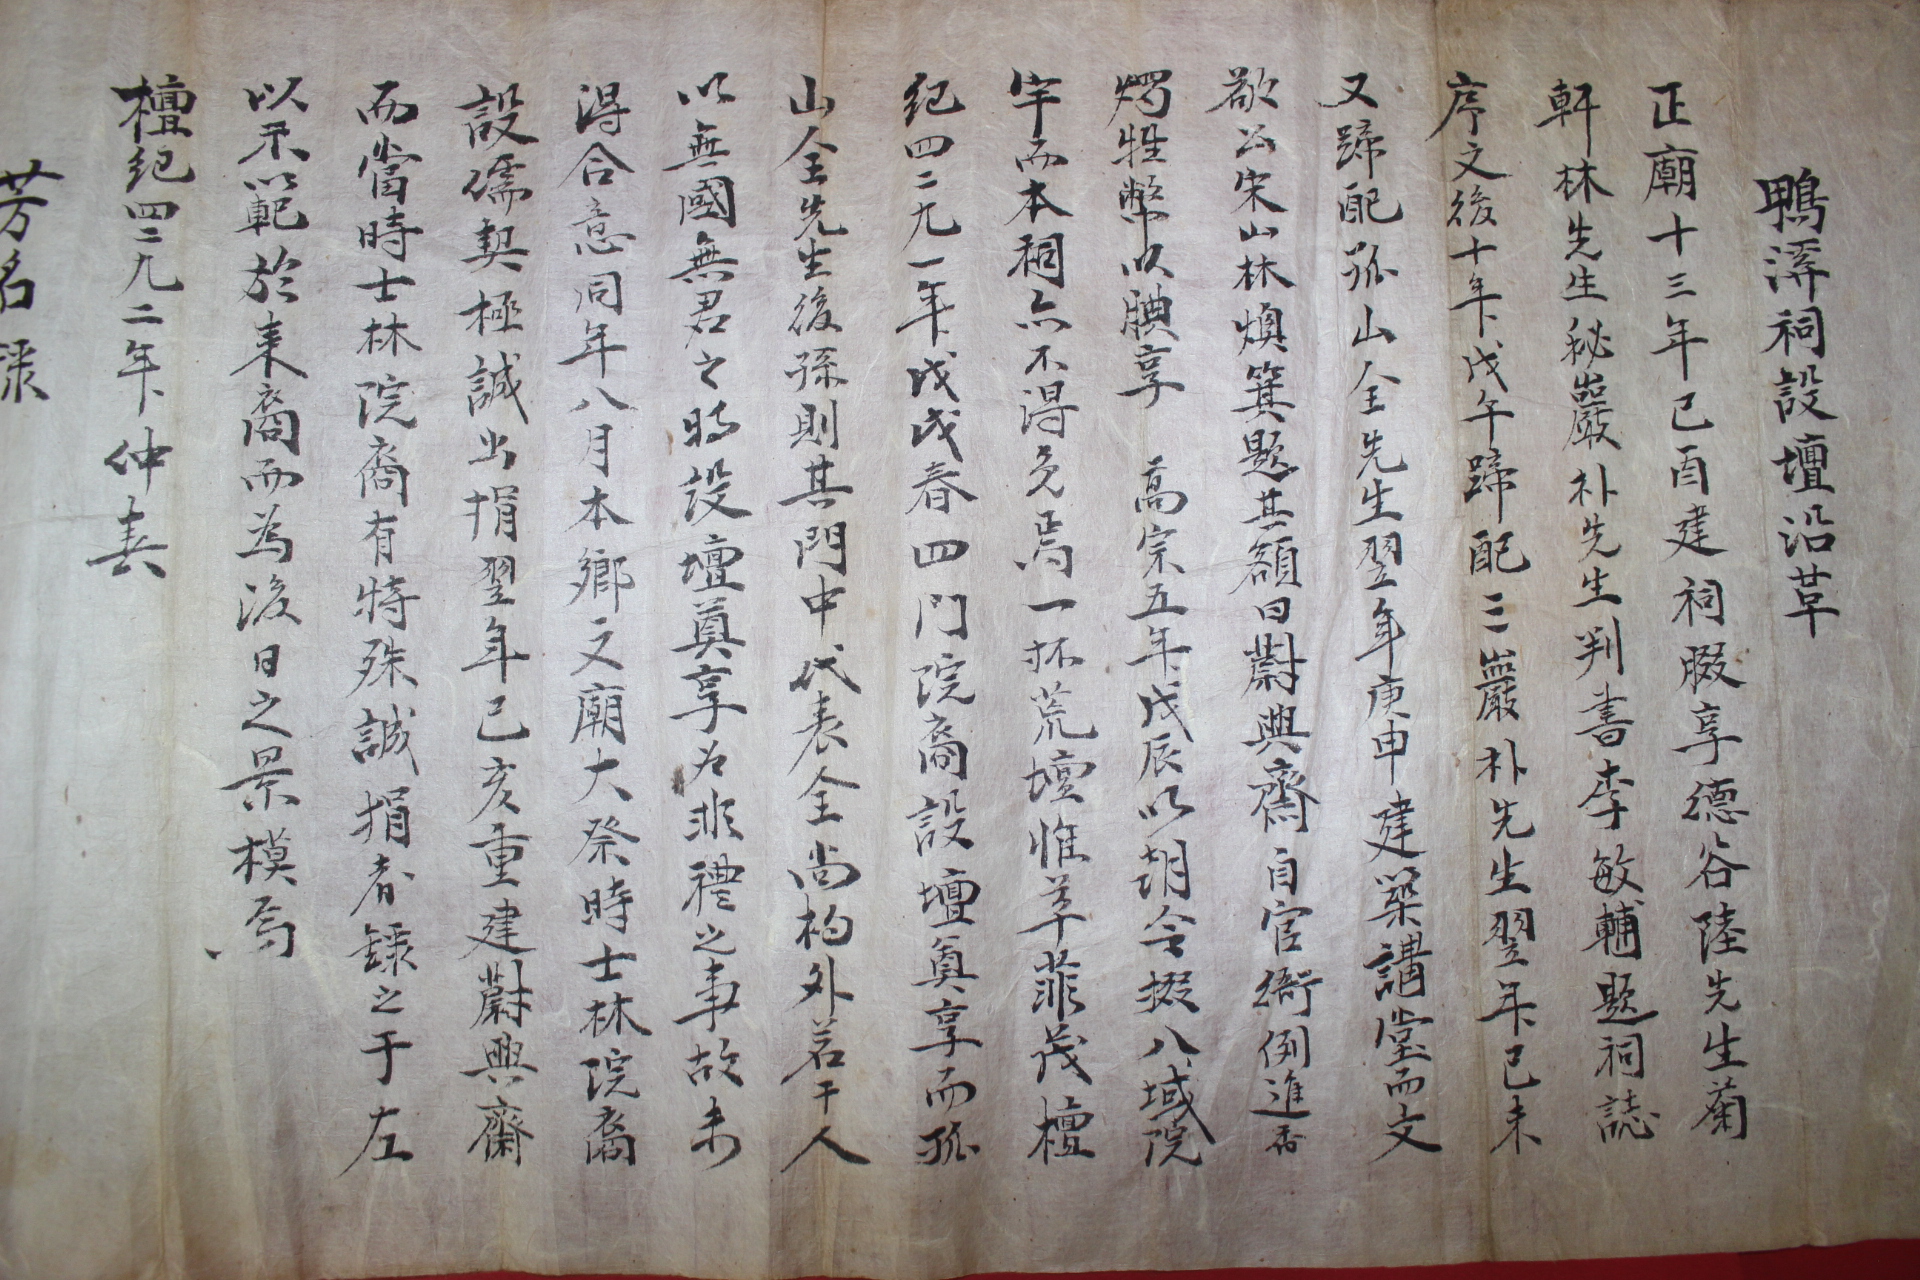 鴨溪祠設壇沿革
正廟十三年己酉建祠腏享德谷陸先生菊
軒林先生秘巖朴先生判書李敏輔題祠誌
序文後十年戊午躋配三巖朴先生翌年己未
又躋配孤山全先生翌年庚申建築講堂而文
敬公宋山林煥箕題其額曰蔚興齋自官衙例進香
燭牲幣以腆享 高宗五年戊辰以朝令掇八域院
宇而本祠亦不得免焉一抔荒壇惟草菲茂檀
紀四二九一年戊戌春四門院裔設壇奠享而孤
山全先生後孫則其門中代表全尙杓外若干人
以無國無君之時設壇奠享爲非禮之事故未
得合意同年八月本鄉文廟大祭時士林院裔
設儒契極誠出捐翌年己亥重建蔚興齋
而當時士林院裔有特殊誠捐者錄之于左
以示以範於來裔而為後日之景模焉
檀紀四二九二年仲春
芳名錄